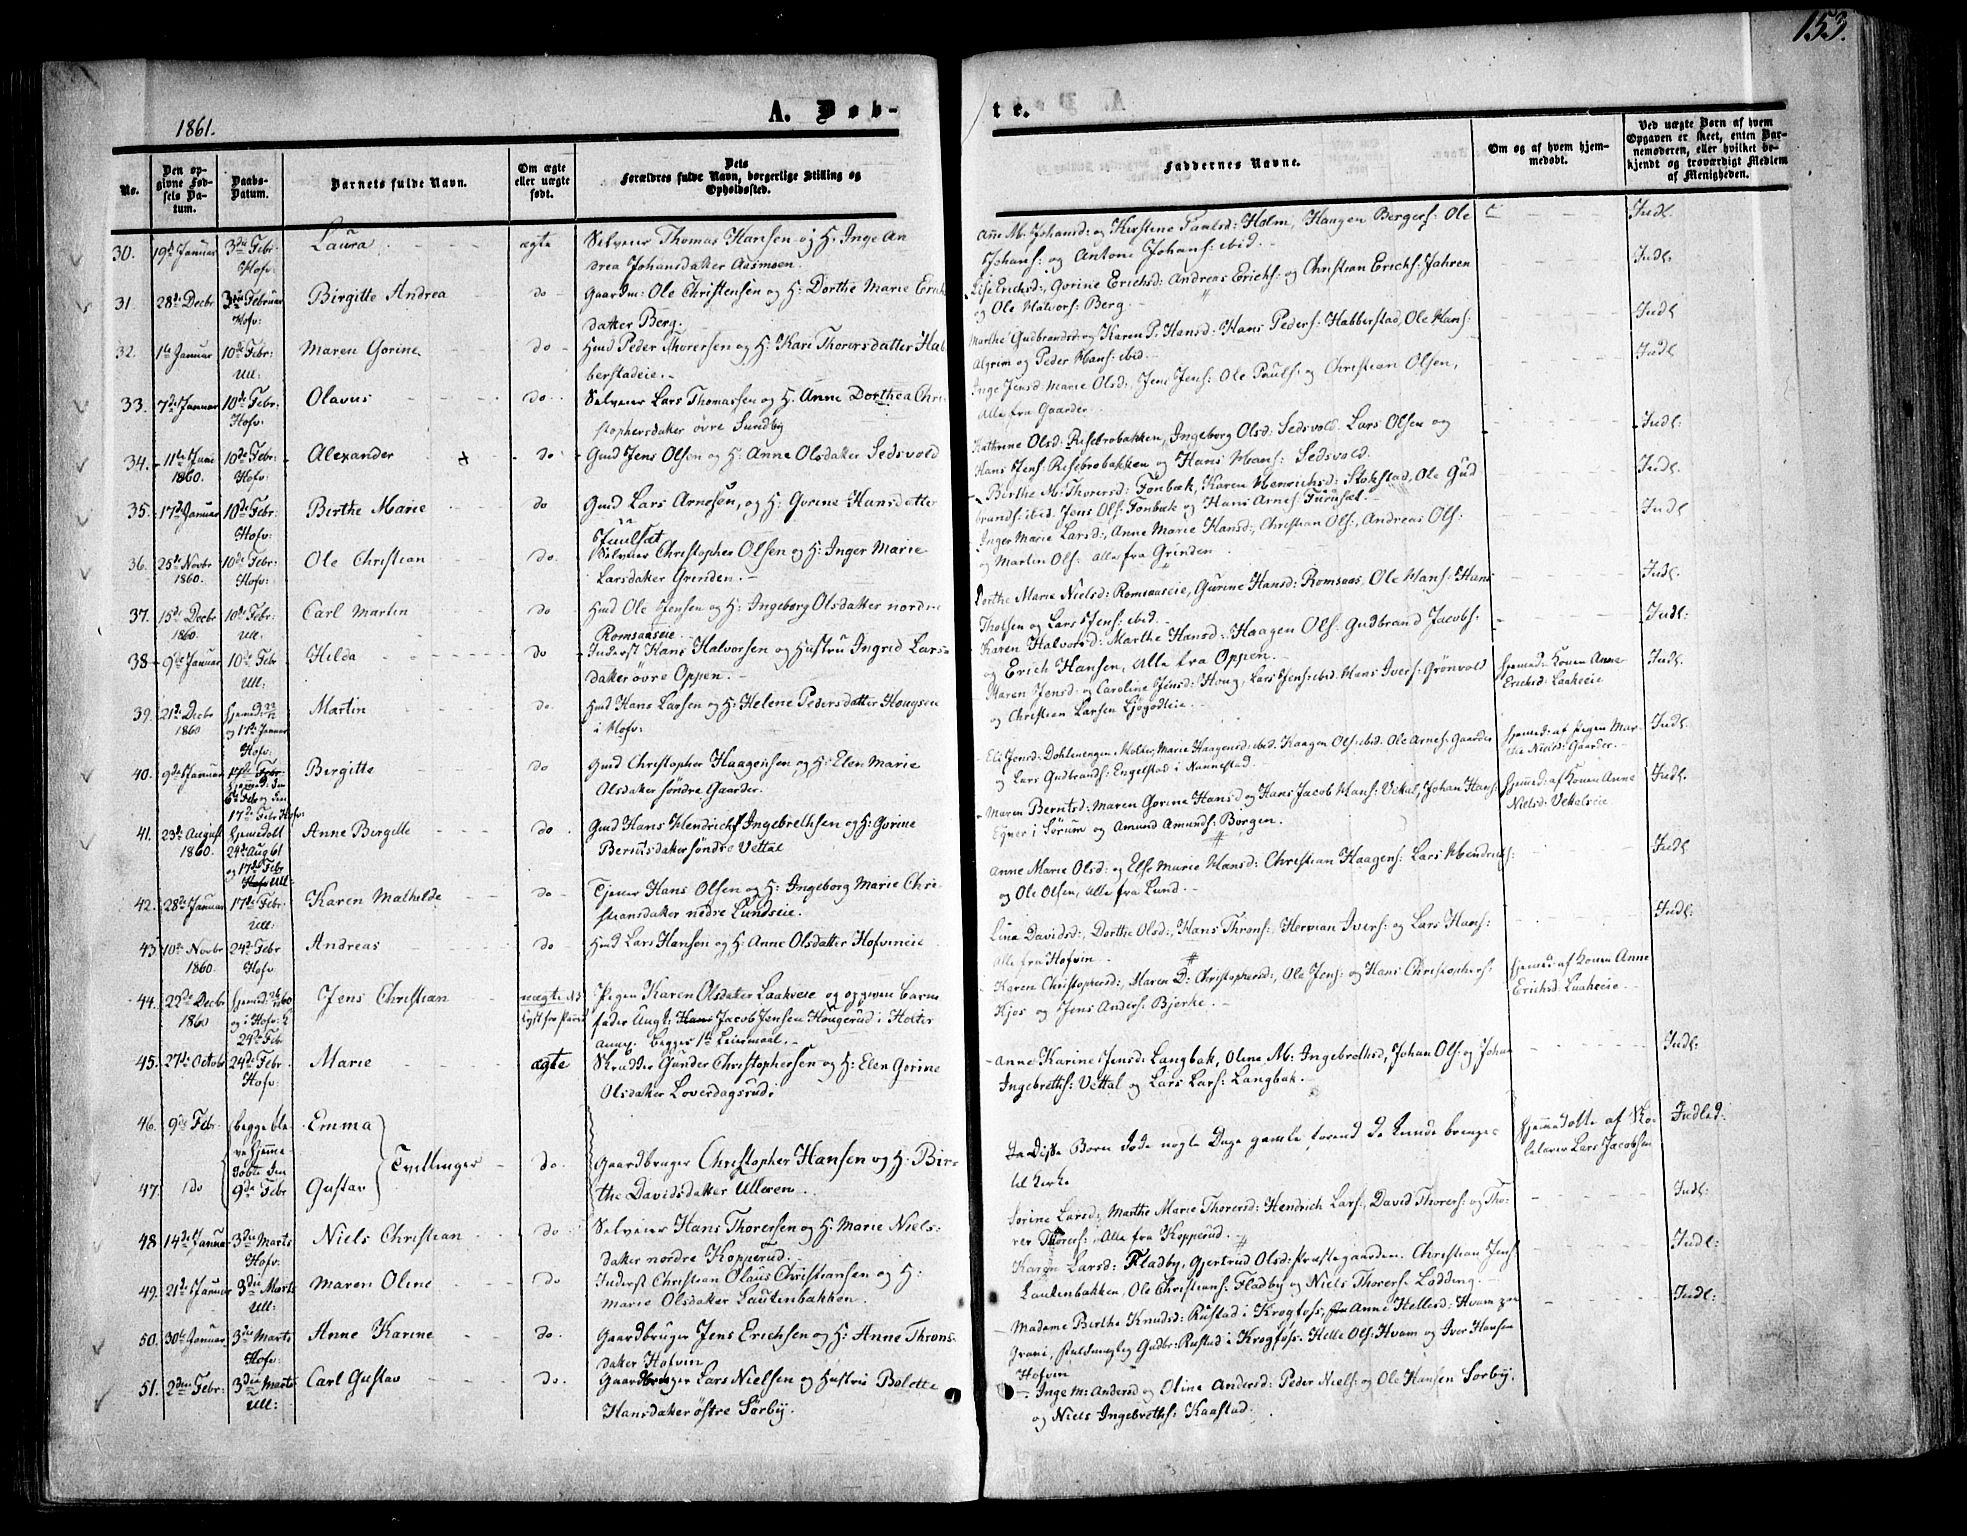 153.
1861.
A. Døb-
te.
No.
Den op-
givne Fød-
sels Da-
tum.
Daabs-
Datum.
Barnets fulde Navn.
Om ægte
eller uægte
født.
Dets
Forældres fulde Navn, borgerlige Stilling og
Opholdssted.
Faddernes Navne.
Om og af hvem hjem-
medøbt.
Ved uægte Børn af hvem
Opgaven er skeet, enten Bar-
nemoderen, eller hvilket be-
kjendt og troværdigt Medlem
af Menigheden.
30. 19de Januar 3die Febr: Laura ægte Selveier Thomas Hansen og H: Inge An
Hofv: drea Johansdatter Aasmoen.
Ane M. Johansd: og Kirstine Paulsd: Holm, Haagen Bergers: Ole Indl.
Johans: og Antone Johans: ibid.
31. 28de Decbr 3die Februar Birgitte Andrea do Gaardm: Ole Christensen og H: Dorthe Marie Erichs
Hofv: datter Berg.
Lise Erichsd:, Gorine Erichsd: Andreas Erichs: og Christian Erichs: Jahren Indl.
og Ole Halvors: Berg.
32. 1ste Januar 10de Febr: Maren Gorine do Hmd Peder Thorersen og H: Kari Thorersdatter Hab
Ull: berstadeie.
Marthe Gudbrandsd: og Karen P. Hansd: Hans Peders: Habberstad, Ole Hans: Indl
Algrim og Peder Hans: ibid.
33. 7de Januar 10de Febr: Olavus do Selveier Lars Thomassen og H: Anne Dorthea Chri
Hofv: stophersdatter øvre Sundby
Inge Jensd Marie Olsd:, Jens Jens: Ole Pauls: og Christian Olsen, Indl
Alle fra Gaarder.
34. 11te Juni 10de Febr: Alexander + do Gmd Jens Olsen og H: Anne Olsdatter Sedsvold
1860. Hofv:
Kathrine Olsd: Risebrobakken, Ingeborg Olsd: Sedsvold. Lars Olsen og Indl:
Hans Jens: Risebrobakken og Hans Hans: Sedsvold.
35. 17de Januar 10de Febr: Birthe Marie do Gmd Lars Arnesen, og H: Gorine Hansdatter
Hofv:
Berthe M: Thorersd: Fonbæk, Karen Henrichsd: Stokstad, Ole Gud Indl.
brands: ibid. Jens Ols: Fonbæk og Hans Arnes:
36. 25de Novbr 10de Febr: Ole Christian do. Selveier Christopher Olsen og H: Inger Marie
1860. Hofv: Larsdatter Grinden.
Inger Marie Larsd:, Anne Marie Hansd:, Christian Ols:, Andreas Ols: Indl
og Martin Ols: alle fra Grinden
37. 15de Decbr 10de Febr: Carl Martin do Hmd Ole Jensen og H: Ingeborg Olsdatter nordre
1860. Ull: Romsaaseie
Dorthe Marie Nielsd: Romsaaseie, Gurine Hansd: Romsaas, Ole Hans: Hans Indl.
Tholsen og Lars Jens: ibid.
38 9de Januar 10de Febr Hilda do Inderst Hans Halvorsen og Hustru Ingrid Lars-
Ull: datter øvre Oppen.
Karen Halvorsd: Marthe Hansd: Haagen Ols: Gudbrand Jacobs: Indl:
og Erich Hansen, Alle fra Oppen.
39. 21de Decbr Hjemmed: Martin do. Hmd Hans Larsen og H: Helene Pedersdatter Hougseie
1860 og 17de Januar i Hofv:
Hofv:
Maren Jensd: og Caroline Jensd: Houg, Lars Jens: ibid. Hans Ivers: Grønvold Hjemmed: Konen Anne Indl.
og Christian Larsen Ljøgodteie. Erichsd: Laakeeie
40. 9de Januar Bergitte do Gmd Christopher Haagensen og H: Elen Marie
6te Febr og den Olsdatter søndre Gaarder.
17de Febr Hofv:
Eli Jensd: Dohlenengen Marie Haagensd: ibid. Haagen Ols: ibid. Ole Arnes: Gaarder Hjemmed: af Pigen Mar- Indl.
og Lars Gudbrands: Engelstad i Nannestad. the Nielsd: Gaarder.
41. 23de August Hjemedøbt Anne Bergitte do Gmd Hans Hendrich Ingebrethsen og H: Gorine
1860. 24de Aug 61 Berntsdatter søndre Vettal
og 17de Febr
Hofv Ull:
Maren Berntsd: Maren Gorine Hansd og Hans Jacob Hans: Vettal, Johan Hans: Hjemmed: af Konen Anne Indl.
Egner i Sørum og Amund Amunds: Borgen. Nielsd: Vettalseie
42. 28de Januar 17de Febr: Karen Mathelde do Tjener Hans Olsen og H: Ingeborg Marie Chri-
Ull: stiansdatter nedre Lundseie.
Anne Marie Olsd: og Else Marie Hansd: Christian Haagens: Lars Hendrichs: Indl
og Ole Olsen, Alle fra Lund.
43 10de Novbr 24de Febr Andreas do Hmd Lars Hansen og H: Anne Olsdatter Hofvineie
1860. Hofv.
Lina Davidsd:, Dorthe Olsd:, Hans Throns: Herman Ivers: og Lars Hans: Indl:
alle fra Hofvin.
44. 22de Decbr Jens Christian uægte Pigen Karen Olsdatter Laakeeie og opgiven Barne
1860 og i Hofv: fader Augt: Hans Jacob Jensen Hougerud i Holter
24de Febr annex. Begges 1ste Leiermaal.
Karen Christophersd:, Maren D: Christophersd:, Ole Jens: og Hans Christophers: Hjemmed: af Konen Anne
Kjos og Jens Anders: Bjerke. Erichsd: Laakeeie.
45. 27de Octobr 24de Febr Marie ægte Skrædder Gunder Christophersen og H: Elen Gorine
Hofv: Olsdatter Loverdagsrud.
Anne Karine Jensd: Langbak, Oline M: Ingebrethsd, Johan Ols: og Johan Indl:
Ingebreths: Vettal og Lars Lars: Langbak.
46. 9de Febr. begge ble- Emma
ve Hjemme- Tvillinger do. Gaardbruger Christopher Hansen og H: Bir-
døbte den the Davidsdatter Ulleren.
47. do 9de Febr Gustav
Da disse Børn døde nogle Dage gamle forend de kunde bringes Hjemmedøbte af Indlad:
til Kirke Lars Jacobsen
48 14de Januar 3die Marts Niels Christian do Selveier Hans Thorersen og H: Marie Niels-
Hofv: datter nordre Kopperud.
Sorine Larsd:, Marthe Marie Thorersd: Hendrich Lars:, David Thorers: og Tho- Indl:
rer Thorers: Alle fra Kopperud.
49. 21de Januar 3die Marts Maren Oline do Inderst Christian Olaus Christiansen og H:
Ull: Marie Olsdatter Lautenbakken.
Karen Larsd: Fladby, Gjertrud Olsd: Præstegaarden. Christian Jens: Indl:
Lautenbakken, Ole Christians: Fladby og Niels Thorers: Lodding.
50. 30te Januar 3die Marts Anne Karine do. Gaardbruger Jens Erichsen og H: Anne Throns-
Hofv: datter Hofvin
Madame Birthe Knudsd: Rustad i Krogfoss, Anne Hellesd: Hvam paa Indl:
Grani, Gudbr: Rustad i Krogfoss. Helle Ols: Hvam og Iver Hansen
Hofvin
51. 2den Febr: 3die Marts Carl Gustav do. Gaardbruger Lars Nielsen og Hustru Bolette
Ull: Hansdatter østre Sørby.
Inge M: Andersd og Oline Andersd: Peder Niels: og Ole Hansen Sørby.
og Niels Ingebreths: Kaastad.